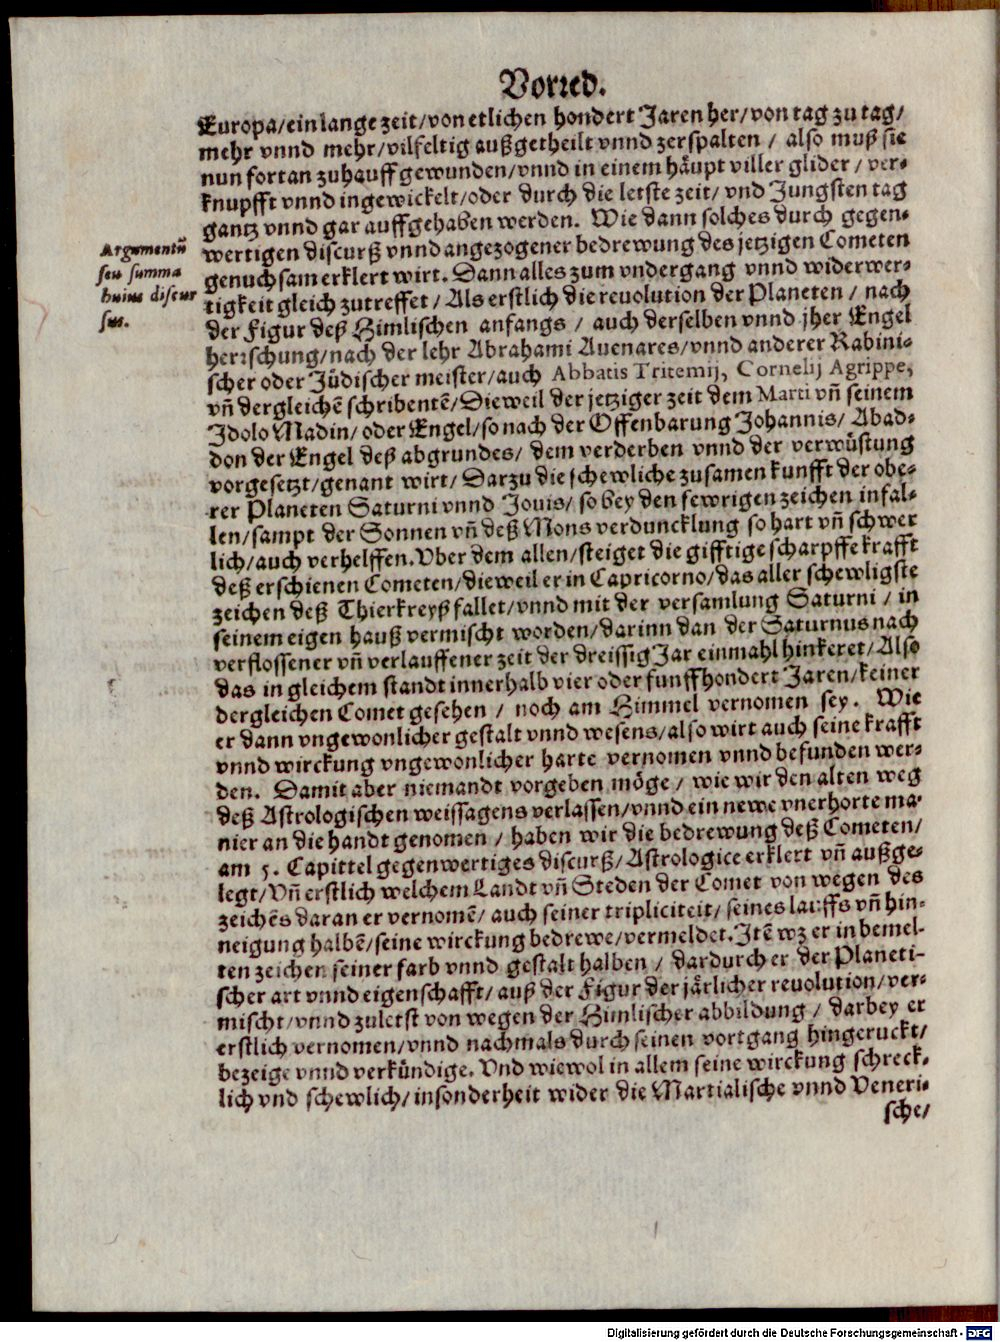 Vorred.
Europa/ein lange zeit/von etlichen hondert Jaren her/von tag zu tag/
mehr vnnd mehr/vilfeltig außgetheilt vnnd zerspalten / also muß sie
nun fortan zuhauff gewunden/vnnd in einem häupt viller glider / ver-
knupfft vnnd ingewickelt/oder durch die letste zeit/ vnd Jungsten tag
gantz vnnd gar auffgehaben werden. Wie dann solches durch gegen-
Argumentũ
seu summa
huius discur
sus.
wertigen discurß vnnd angezogener bedrewung des jetzigen Cometen
genuchsam erklert wirt. Dann alles zum vndergang vnnd widerwer-
tigkeit gleich zutreffet/ Als erstlich die reuolution der Planeten / nach
der Figur deß Himlischen anfangs / auch derselben vnnd jher Engel
herrschung/nach der lehr Abrahami Auenares/vnnd anderer Rabini-
scher oder Jüdischer meister/auch Abbatis Tritemij, Cornelij Agrippe,
vñ dergleichẽ schribentẽ/Dieweil der jetziger zeit dem Marti vñ seinem
Idolo Madin/oder Engel/so nach der Offenbarung Johannis/ Abad-
don der Engel deß abgrundes/ dem verderben vnnd der verwüstung
vorgesetzt/genant wirt/ Darzu die schewliche zusamen kunfft der obe-
rer Planeten Saturni vnnd Jouis/ so bey den fewrigen zeichen infal-
len/sampt der Sonnen vñ deß Mons verduncklung so hart vñ schwer
lich/auch verhelffen. Vber dem allen/steiget die gifftige scharpffe krafft
deß erschienen Cometen/dieweil er in Capricorno/das aller schewligste
zeichen deß Thierkreyß fallet/vnnd mit der versamlung Saturni / in
seinem eigen hauß vermischt worden/darinn dan der Saturnus nach
verflossener vñ verlauffener zeit der dreissig Jar einmahl hinkeret/Also
das in gleichem standt innerhalb vier oder funffhondert Jaren/keiner
dergleichen Comet gesehen / noch am Himmel vernomen sey. Wie
er dann vngewonlicher gestalt vnnd wesens/also wirt auch seine krafft
vnnd wirckung vngewonlicher harte vernomen vnnd befunden wer-
den. Damit aber niemandt vorgeben möge / wie wir den alten weg
deß Astrologischen weissagens verlassen/vnnd ein newe vnerhorte ma-
nier an die handt genomen / haben wir die bedrewung deß Cometen/
am 5. Capittel gegenwertiges discurß/Astrologice erklert vñ außge-
legt/Vñ erstlich welchem Landt vñ Steden der Comet von wegen des
zeichẽs daran er vernomẽ/ auch seiner tripliciteit/ seines lauffs vñ hin-
neigung halbẽ/seine wirckung bedrewe/vermeldet. Itẽ wz er in bemel-
ten zeichen seiner farb vnnd gestalt halben / dardurch er der Planeti-
scher art vnnd eigenschafft/ auß der Figur der järlicher reuolution/ver-
mischt/vnnd zuletst von wegen der Himlischer abbildung / darbey er
erstlich vernomen/vnnd nachmals durch seinen vortgang hingeruckt/
bezeige vnnd verkündige. Vnd wiewol in allem seine wirckung schreck-
lich vnd schewlich/insonderheit wider die Martialische vnnd Veneri-
sche/
Digitalisierung gefördert durch die Deutsche Forschungsgemeinschaft - DFG